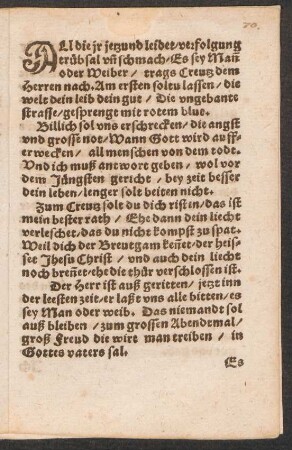 ALl die jr jetzund leidet/verfolgung
trübsal vñ schmach/Es sey Mañ
oder Weiber/ trags Creutz dem
Herren nach. Am ersten soltu lassen/ die
welt dein leib dein gut/ Die vngebante
strasse/gesprengt mit rotem blut.
Billich sol vns erschrecken/die angst
vnd grosse not/Wann Gott wird auff-
erwecken/ all menschen von dem todt.
Vnd ich muß antwort geben/ wol vor
dem Jüngsten gericht/ bey zeit besser
dein leben/lenger solt beiten nicht.
Zum Creutz solt du dich rüsten/das ist
mein bester rath/ Ehe dann dein liecht
verleschet/das du nicht kompst zu spat.
Weil dich der Breutgam keñet/der heis-
set Jhesu Christ/ vnd auch dein liecht
noch breñet/ehe die thür verschlossen ist.
Der Herr ist auß geritten/ jetzt inn
der leesten zeit/er laßt vns alle bitten/es
sey Man oder weib. Das niemandt sol
auß bleiben/zum grossen Abendtmal/
groß Freud die wirt man treiben/ in
Gottes vaters sal.
Es